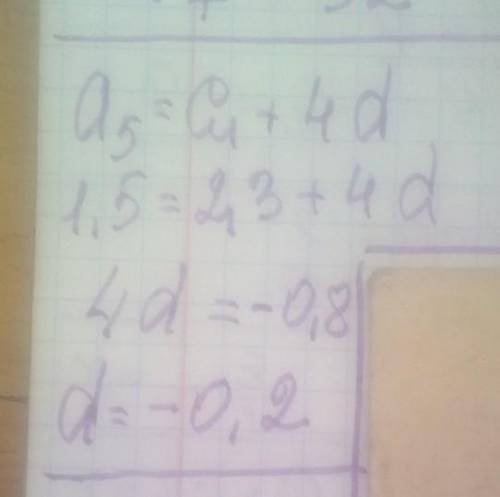 a₅ = a₁ + 4d
1,5 = 2,3 + 4d
4d = -0,8
d = -0,2